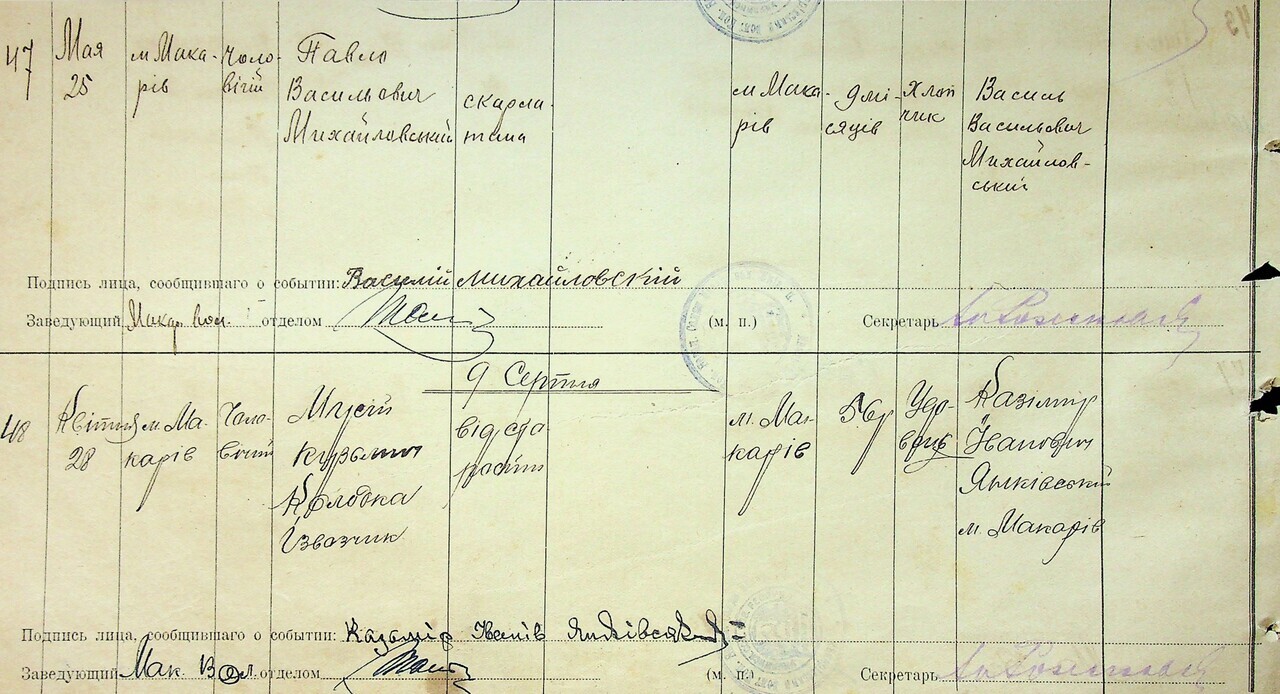 47
Мая
25
м Мака-
рів
Чоло-
вігій
Павло
Васильович
Михайловський
скарла-
тина
м Мака-
рів
9 мі-
сяців
Хлоп
чик
Василь
Васильович
Михайлов-
ський
Подпись лица, сообщившего о событии: Василій Михайловскій
Заведующий Макар. вол. отделом
(м. п.)
Секретарь
9 Серпня
48
Квітня
28
м. Ма-
карів
Чоло-
вочий
Мусій
Кузьмич
Колодка
Ізвозчик
від ста-
рости
м. Ма-
карів
56 р
Удо-
вець
Казімір
Іванович
Яньківський
м. Макарів
Подпись лица, сообщившего о событии: Казимір Іванів
Заведующий Мак. Вол. отделом
(м. п.)
Секретарь